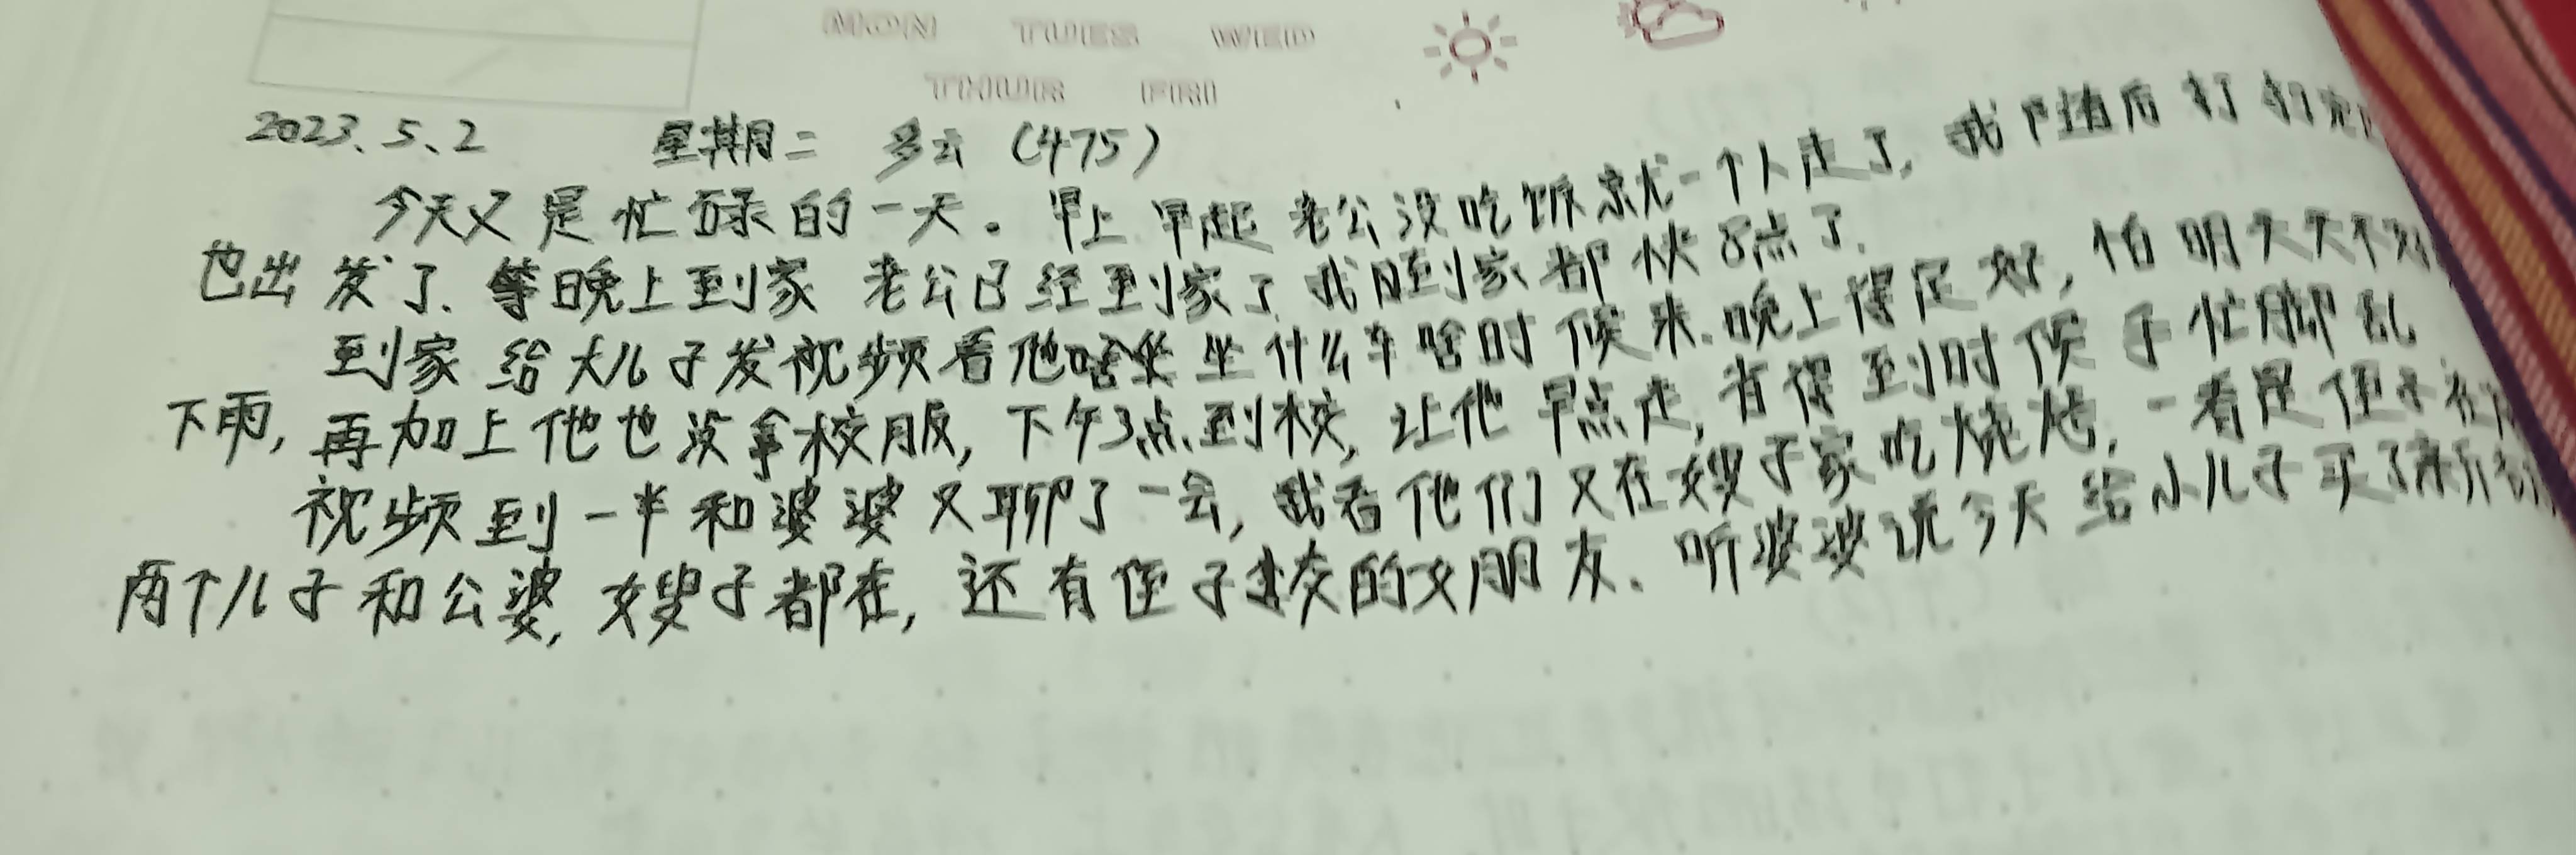 MON TUES WED
THUR FRI
2023、5、2 星期二 多云（475）
今天又是忙碌的一天。早上早起老公没吃饭就一个人走了，我随后打
也出发了。等晚上到家 老公已经到家了 我到家都快8点了.
到家给大儿子发视频看他啥坐什么车啥时候来.晚上得 怕明天天
下雨，再加上他也没拿校服，下午3点到校，让他早点走，省得到时候手忙脚乱
视频到一半和婆婆又聊了一会，我看他们又在嫂子家吃烧烤，一看是侄子
两个儿子和公婆，嫂子都在，还有侄子交的女朋友.听婆婆说今天给小儿子买了新